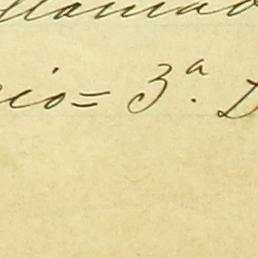 llamado
cio= 3.ª D